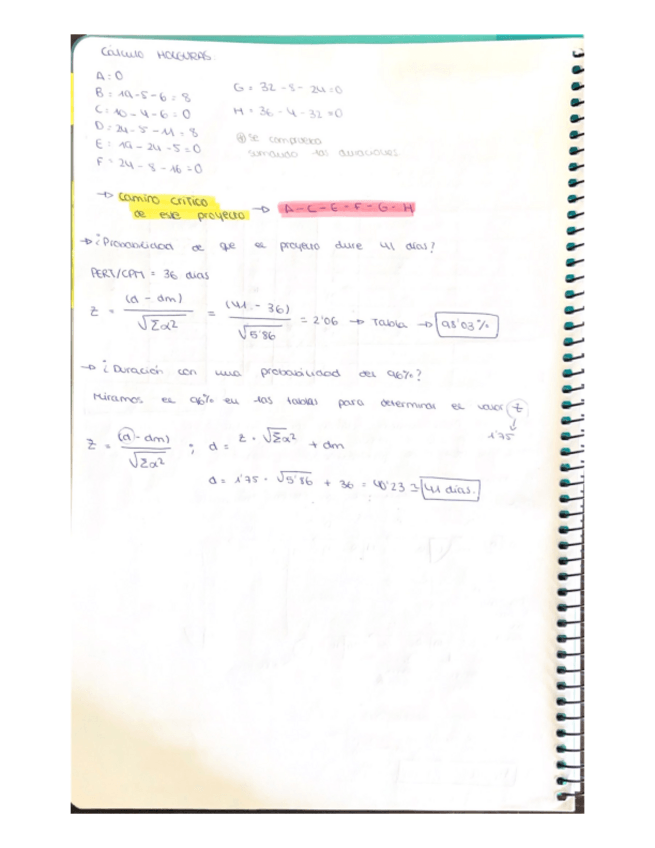 CÁLCULO HOLGURAS
A = 0
B = 19-5-6 = 8
C = 10-4-6 = 0
D = 24-5-11 = 8
E = 19-24-5 = 0
F = 24-8-16 = 0
G = 32-8-24 = 0
H = 36-4-32 = 0
se comprueba
sumando las duraciones
→ camino crítico
de este proyecto → A-C-E-F-G-H
→ ¿Probabilidad de que el proyecto dure 41 días?
PERT/CPM = 36 días
Z = (d - dm) / √Σα² = (41 - 36) / √5'86 = 2'06 → Tabla → 98'03%
→ ¿Duración con una probabilidad del 96%?
Miramos el 96% en las tablas para determinar el valor z
↓
1'75
Z = (d - dm) / √Σα² ; d = z · √Σα² + dm
d = 1'75 · √5'86 + 36 = 40'23 ≃ 41 días.